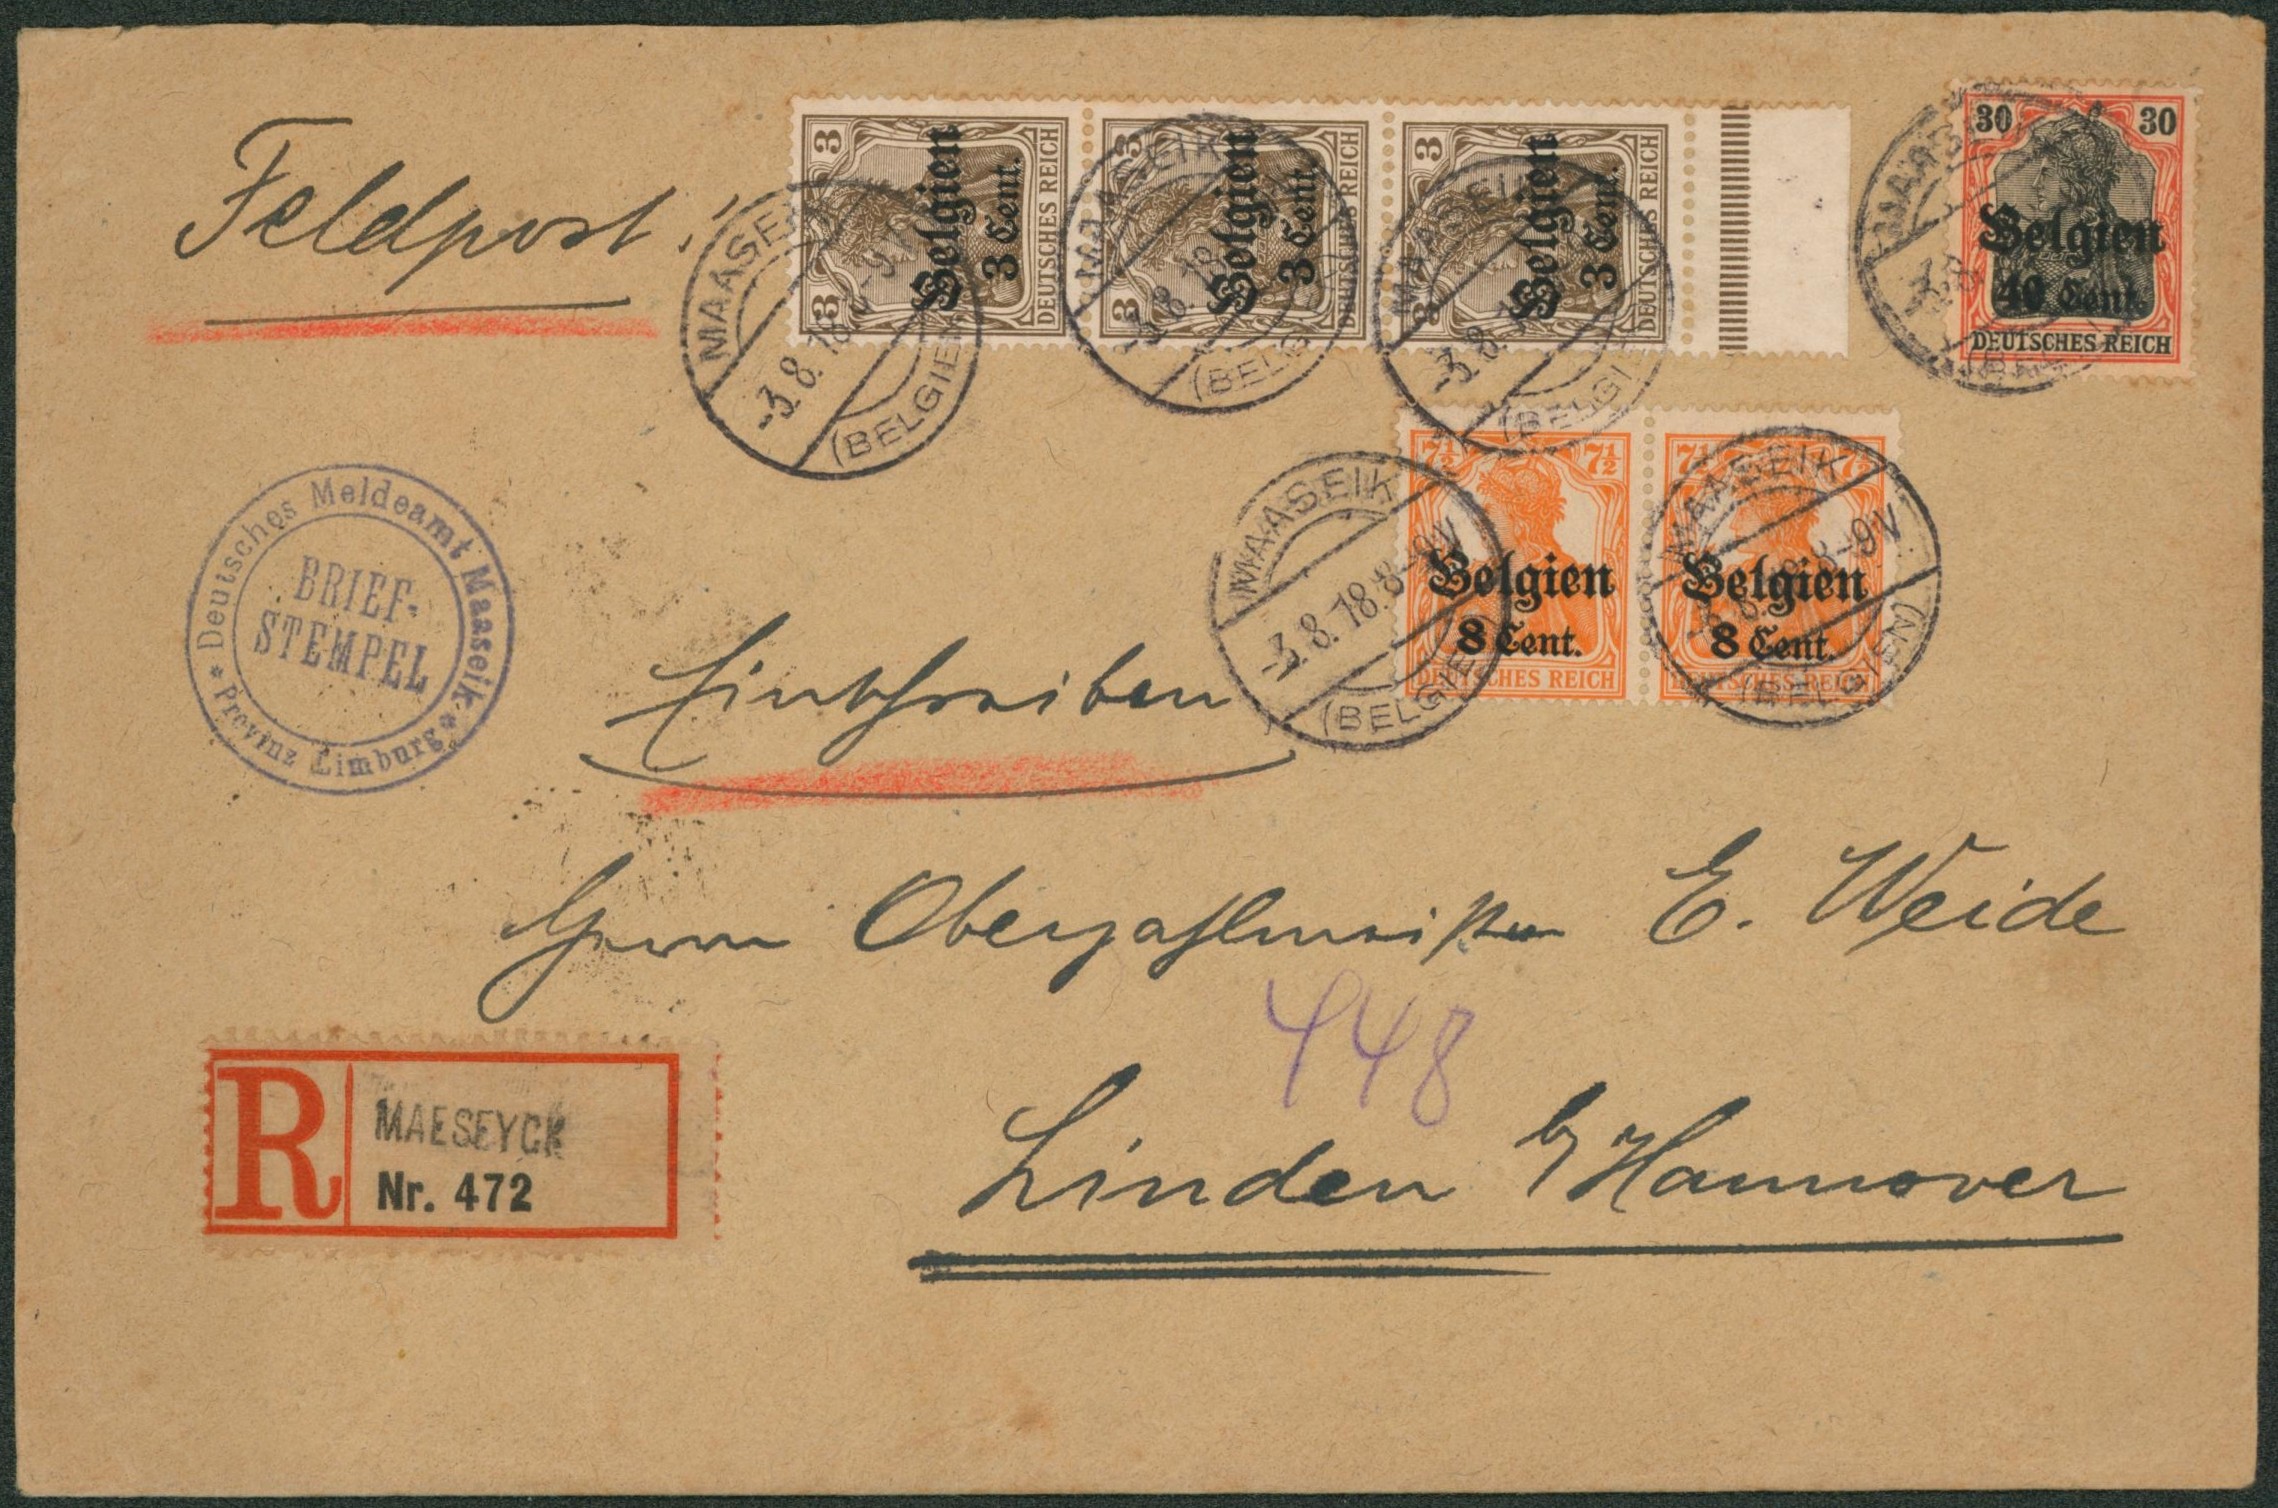 Feldpost!
3 3
Belgien
3 Cent.
DEUTSCHES REICH
3 3
Belgien
3 Cent.
DEUTSCHES REICH
3 3
Belgien
3 Cent.
DEUTSCHES REICH
30 30
Belgien
40 Cent.
DEUTSCHES REICH
MAASEIK
-3.8.18.8-9V
(BELGIEN)
MAASEIK
-3.8.18
(BELGIEN)
MAASEIK
-3.8.18
(BELGIEN)
MAASEIK
-3.8.
7½ 7½
Belgien
8 Cent.
DEUTSCHES REICH
7½ 7½
Belgien
8 Cent.
DEUTSCHES REICH
MAASEIK
-3.8.18.8-9V
(BELGIEN)
MAASEIK
8-9V
(BELGIEN)
* Deutsches Meldeamt Maaseik *
Provinz Limburg
BRIEF-
STEMPEL
Einschreiben
Herrn Oberzahlmeister E. Weide
448
R
MAESEYCK
Nr. 472
Linden b/Hannover